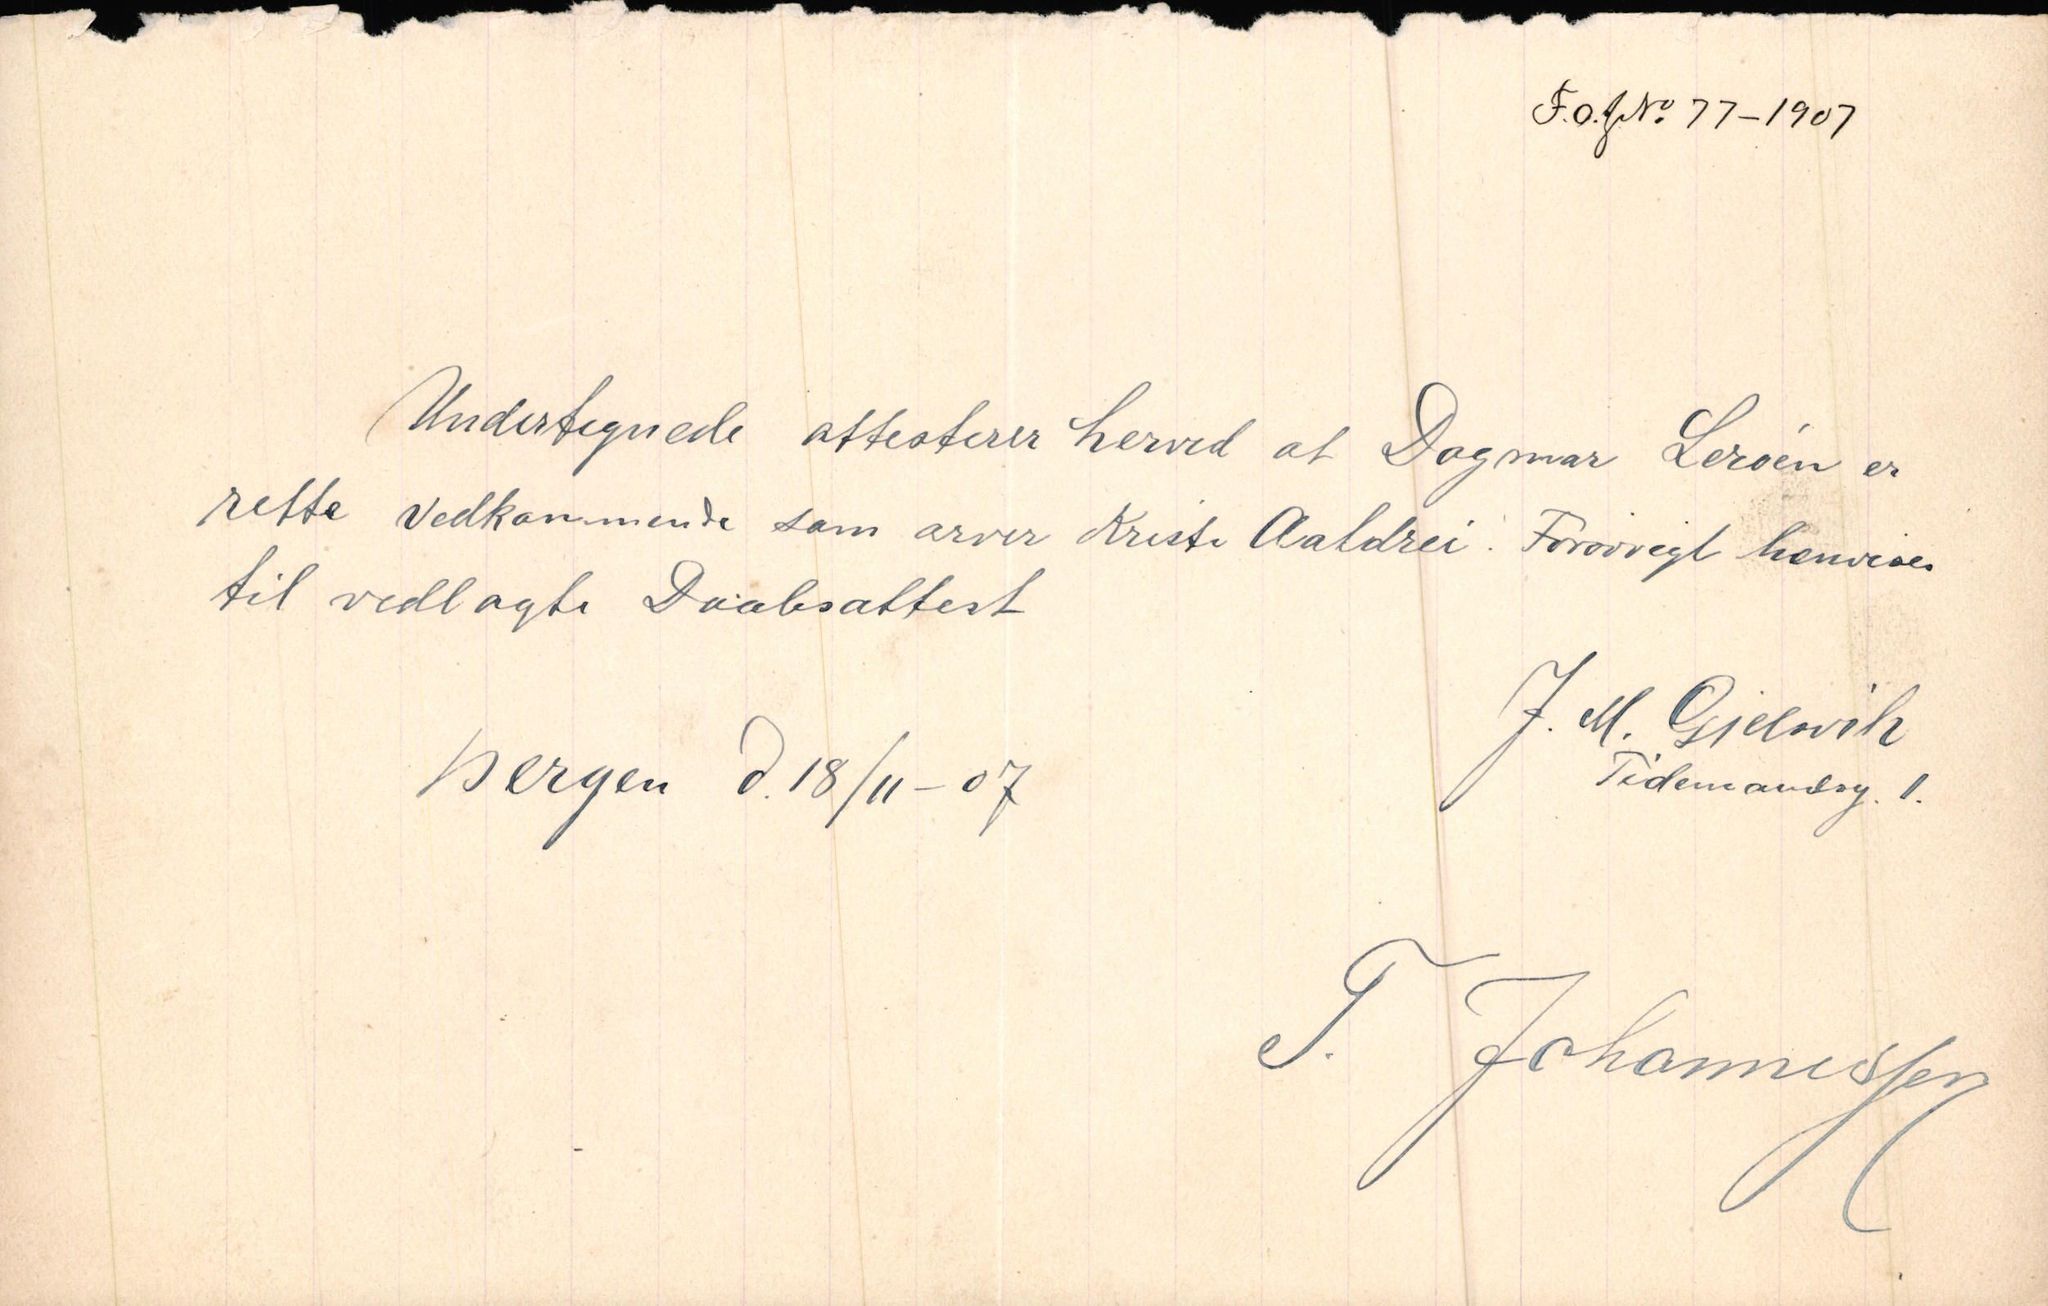 F.O.J. No. 77-1907
Undertegnede attesterer herved at Dagmar Lerøen er
rette Vedkommende som arver Kristi Aaldrei. Forøvrigt henvises
til vedlagte Daabsattest
Bergen d. 18/11-07
J. M. Gjelsvik
Tidemandsg. 1.
T. Johannessen